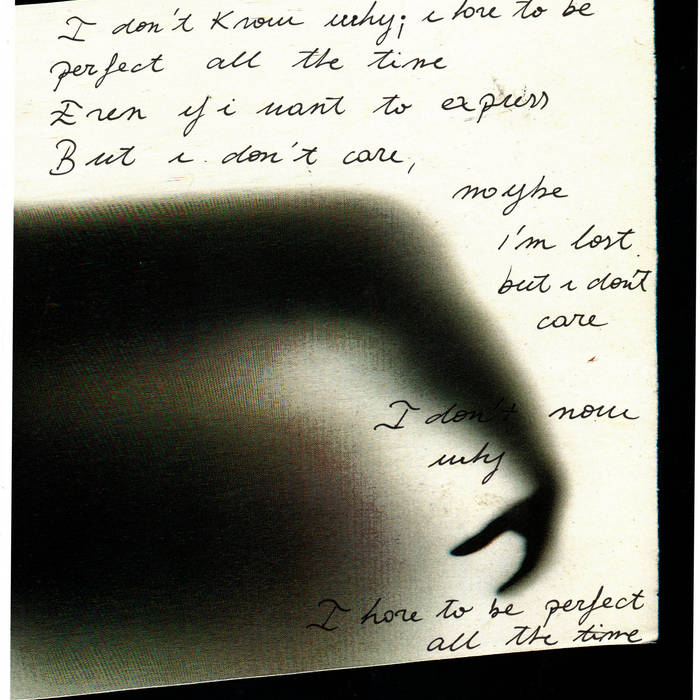 I don't know why; i have to be
perfect all the time
Even if i want to express
But i don't care,
maybe
i'm lost
but i don't
care
I don't now
why
I have to be perfect
all the time